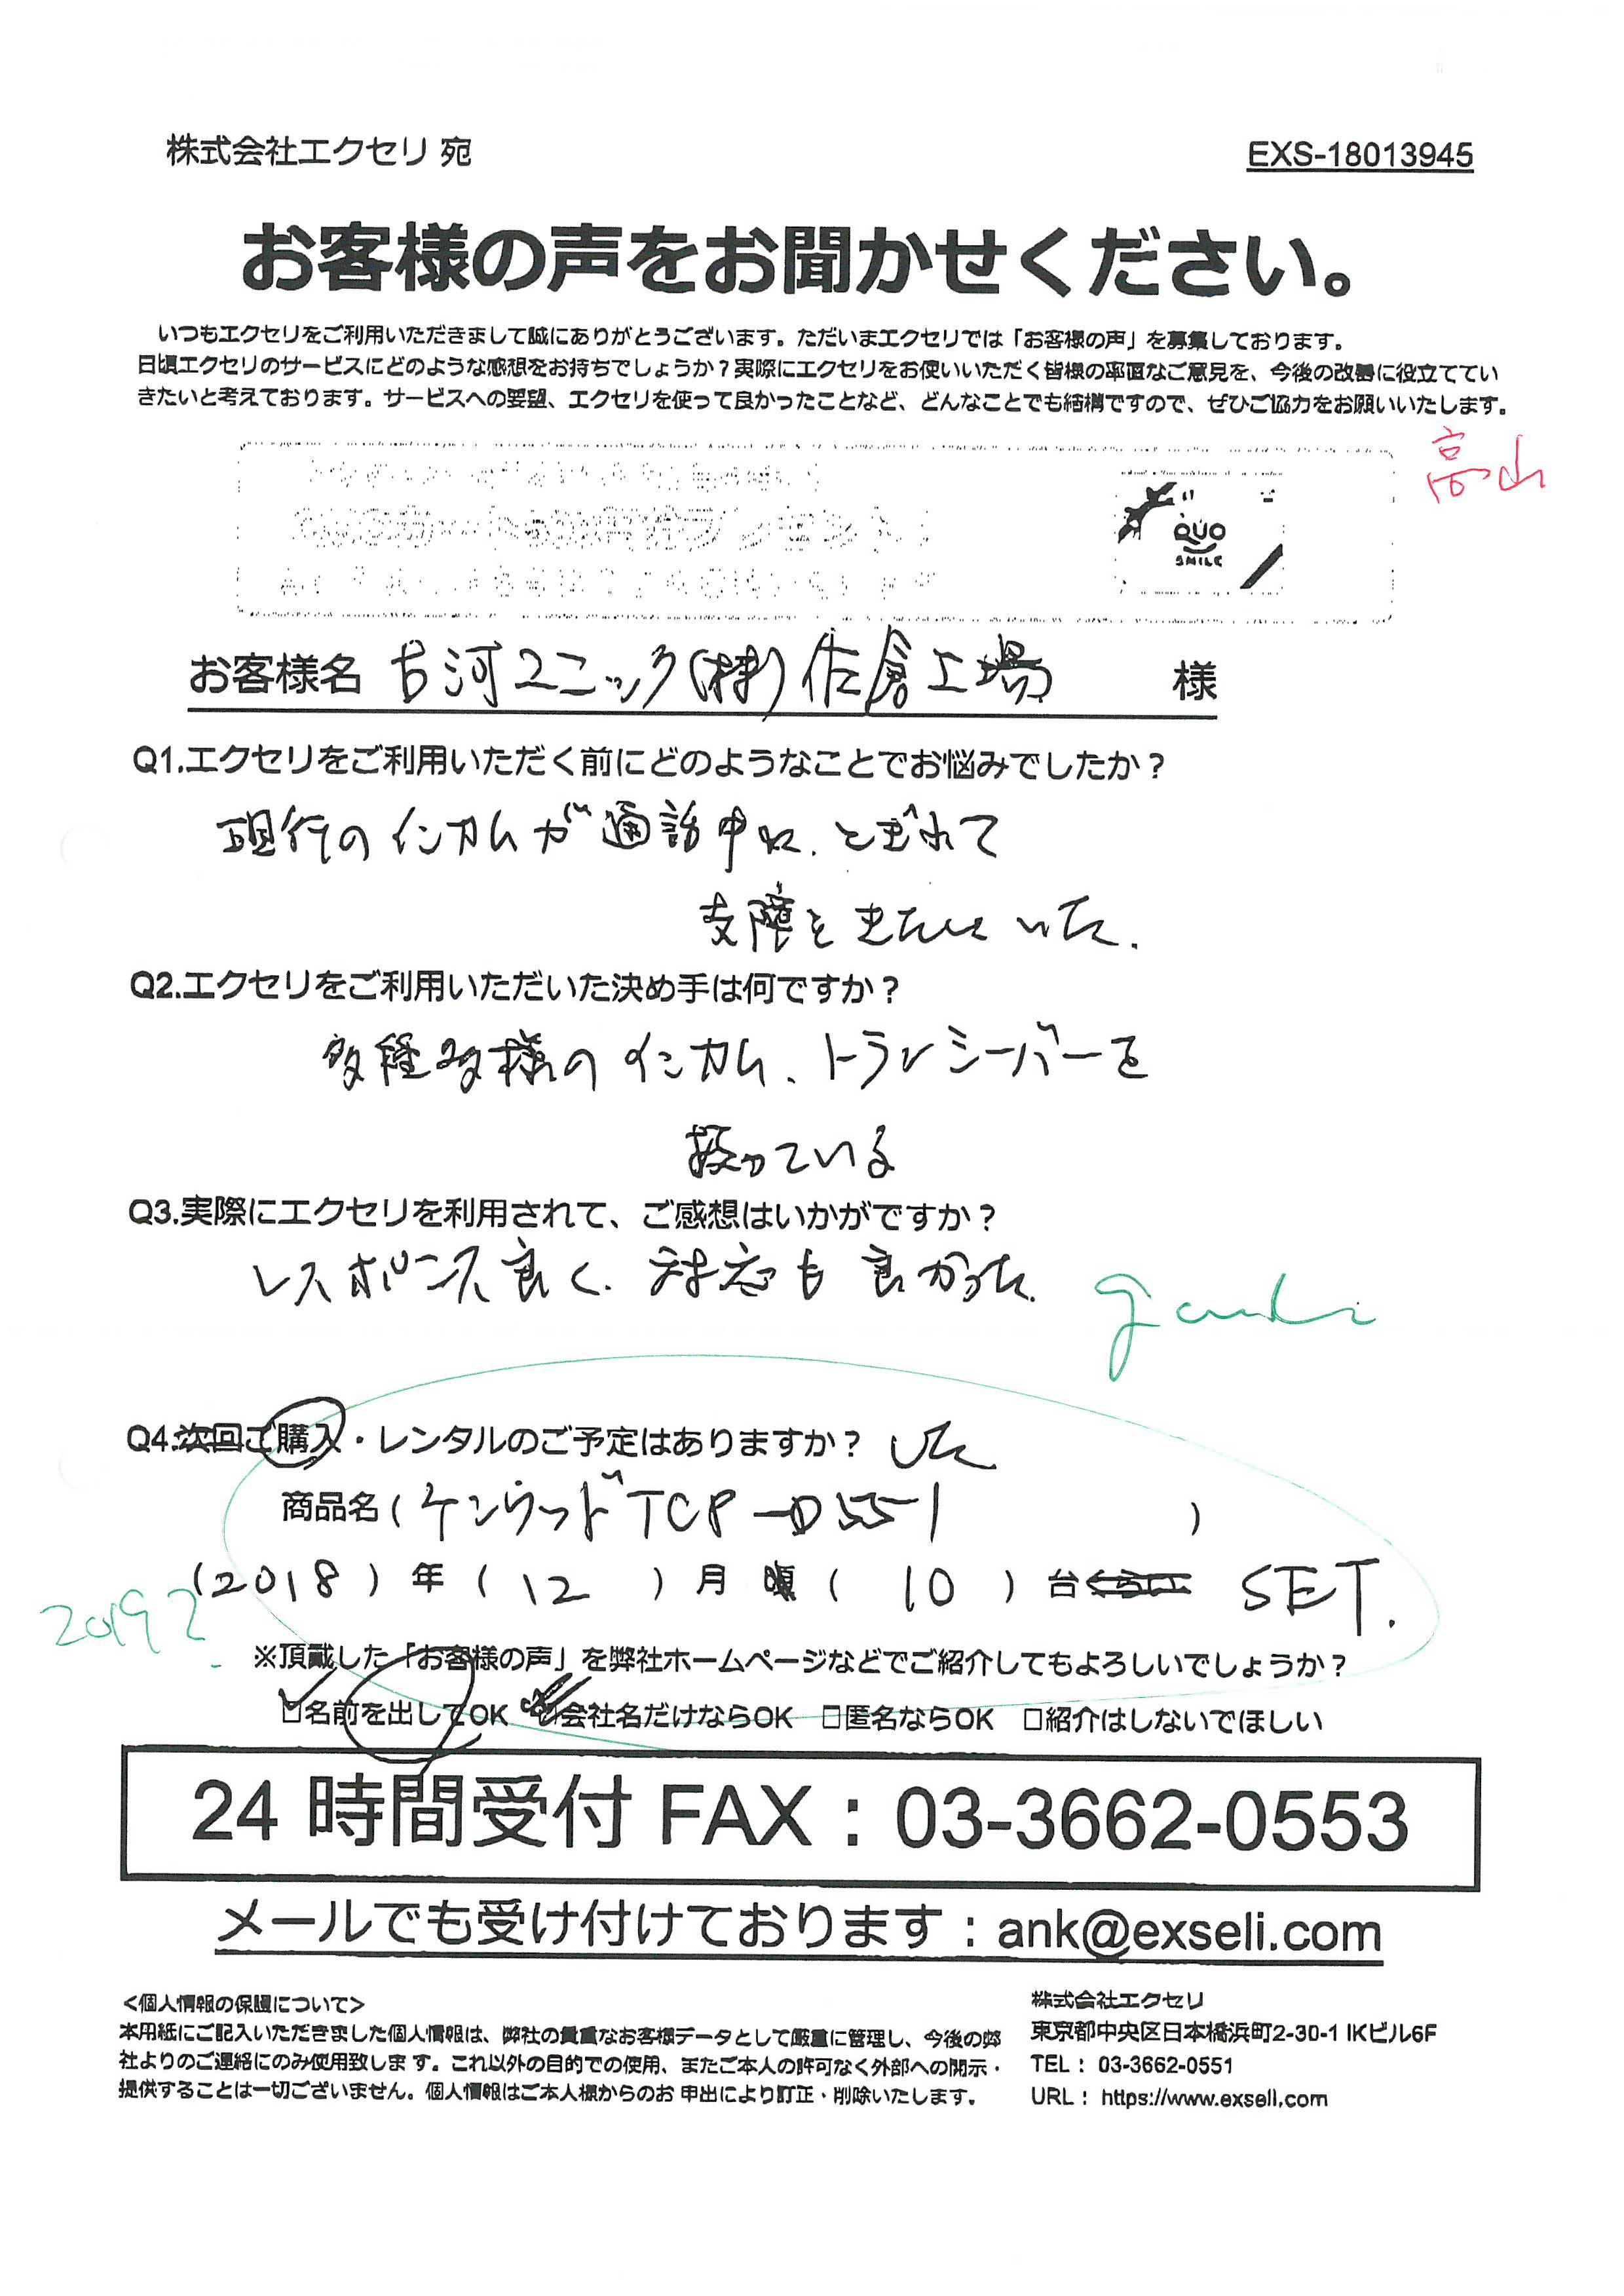 株式会社エクセリ 宛
EXS-18013945
お客様の声をお聞かせください。
いつもエクセリをご利用いただきまして誠にありがとうございます。ただいまエクセリでは「お客様の声」を募集しております。
日頃エクセリのサービスにどのような感想をお持ちでしょうか？実際にエクセリをお使いいただく皆様の率直なご意見を、今後の改善に役立ててい
きたいと考えております。サービスへの要望、エクセリを使って良かったことなど、どんなことでも結構ですので、ぜひご協力をお願いいたします。
高山
QUO
SMILE
お客様名 古河ユニック(株)佐倉工場 様
Q1.エクセリをご利用いただく前にどのようなことでお悩みでしたか？
現行のインカムが通話中に、とぎれて
支障をきたしていた.
Q2.エクセリをご利用いただいた決め手は何ですか？
多種多様のインカム、トランシーバーを
扱っている
Q3.実際にエクセリを利用されて、ご感想はいかがですか？
レスポンス良く、対応も良かった.
Q4.次回ご購入・レンタルのご予定はありますか？ した
商品名（ケンウッドTCP-D551 ）
（2018）年（12）月頃（10）台 SET.
2019?
※頂戴した「お客様の声」を弊社ホームページなどでご紹介してもよろしいでしょうか？
☑名前を出してOK 会社名だけならOK □匿名ならOK □紹介はしないでほしい
24 時間受付 FAX：03-3662-0553
メールでも受け付けております：ank@exseli.com
＜個人情報の保護について＞
本用紙にご記入いただきました個人情報は、弊社の貴重なお客様データとして厳重に管理し、今後の弊
社よりのご連絡にのみ使用致します。これ以外の目的での使用、またご本人の許可なく外部への開示・
提供することは一切ございません。個人情報はご本人様からのお申出により訂正・削除いたします。
株式会社エクセリ
東京都中央区日本橋浜町2-30-1 IKビル6F
TEL： 03-3662-0551
URL： https://www.exseli.com